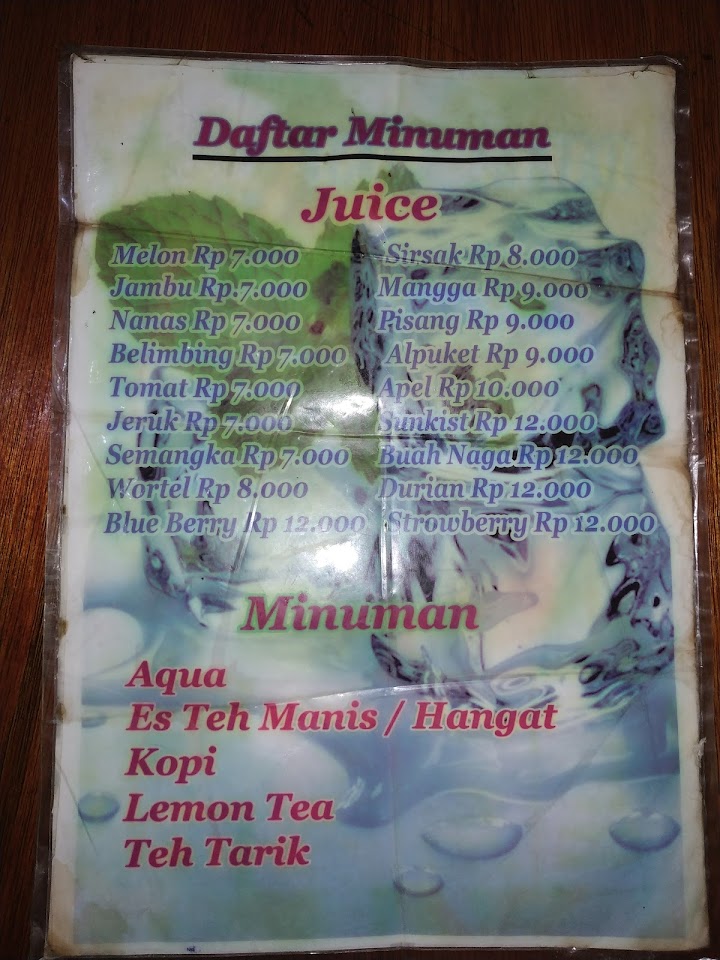 Daftar Minuman
Juice
Melon Rp 7.000
Jambu Rp.7.000
Nanas Rp 7.000
Belimbing Rp 7.000
Tomat Rp 7.000
Jeruk Rp 7.000
Semangka Rp 7.000
Wortel Rp 8.000
Blue Berry Rp 12.000
Sirsak Rp 8.000
Mangga Rp 9.000
Pisang Rp 9.000
Alpuket Rp 9.000
Apel Rp 10.000
Sunkist Rp 12.000
Buah Naga Rp 12.000
Durian Rp 12.000
Strowberry Rp 12.000
Minuman
Aqua
Es Teh Manis / Hangat
Kopi
Lemon Tea
Teh Tarik